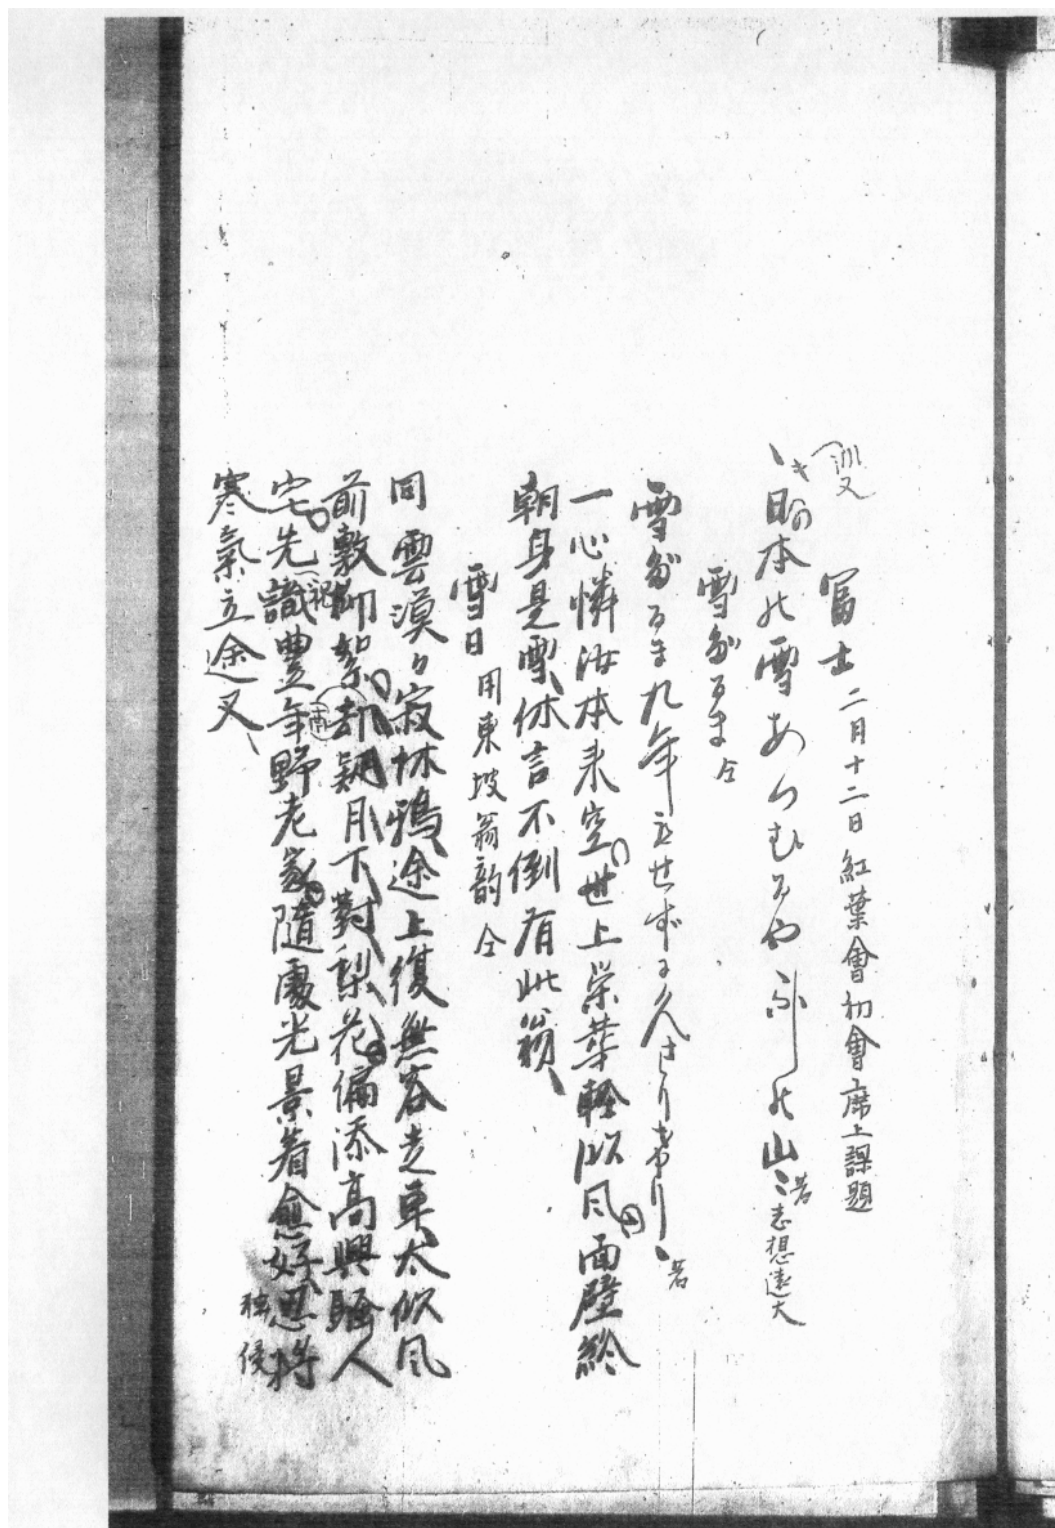 富士 二月十二日 紅葉會初會席上課題
日の本の雪あつむるやふしの山 志想遠大
雪だるま 仝
雪だるま九年もせずに久さりけり
一心憐汝本来空世上栄華軽似風面壁終
朝身是雪休言不倒有此翁
雪日 用東坡翁韵 仝
同雲漠々寂林鴉途上復無容走車太似風
前敷柳絮却疑月下對梨花偏添高興騒人
宅先識豊年野老家随處光景着愈好忍将
独侵
寒氣立途叉